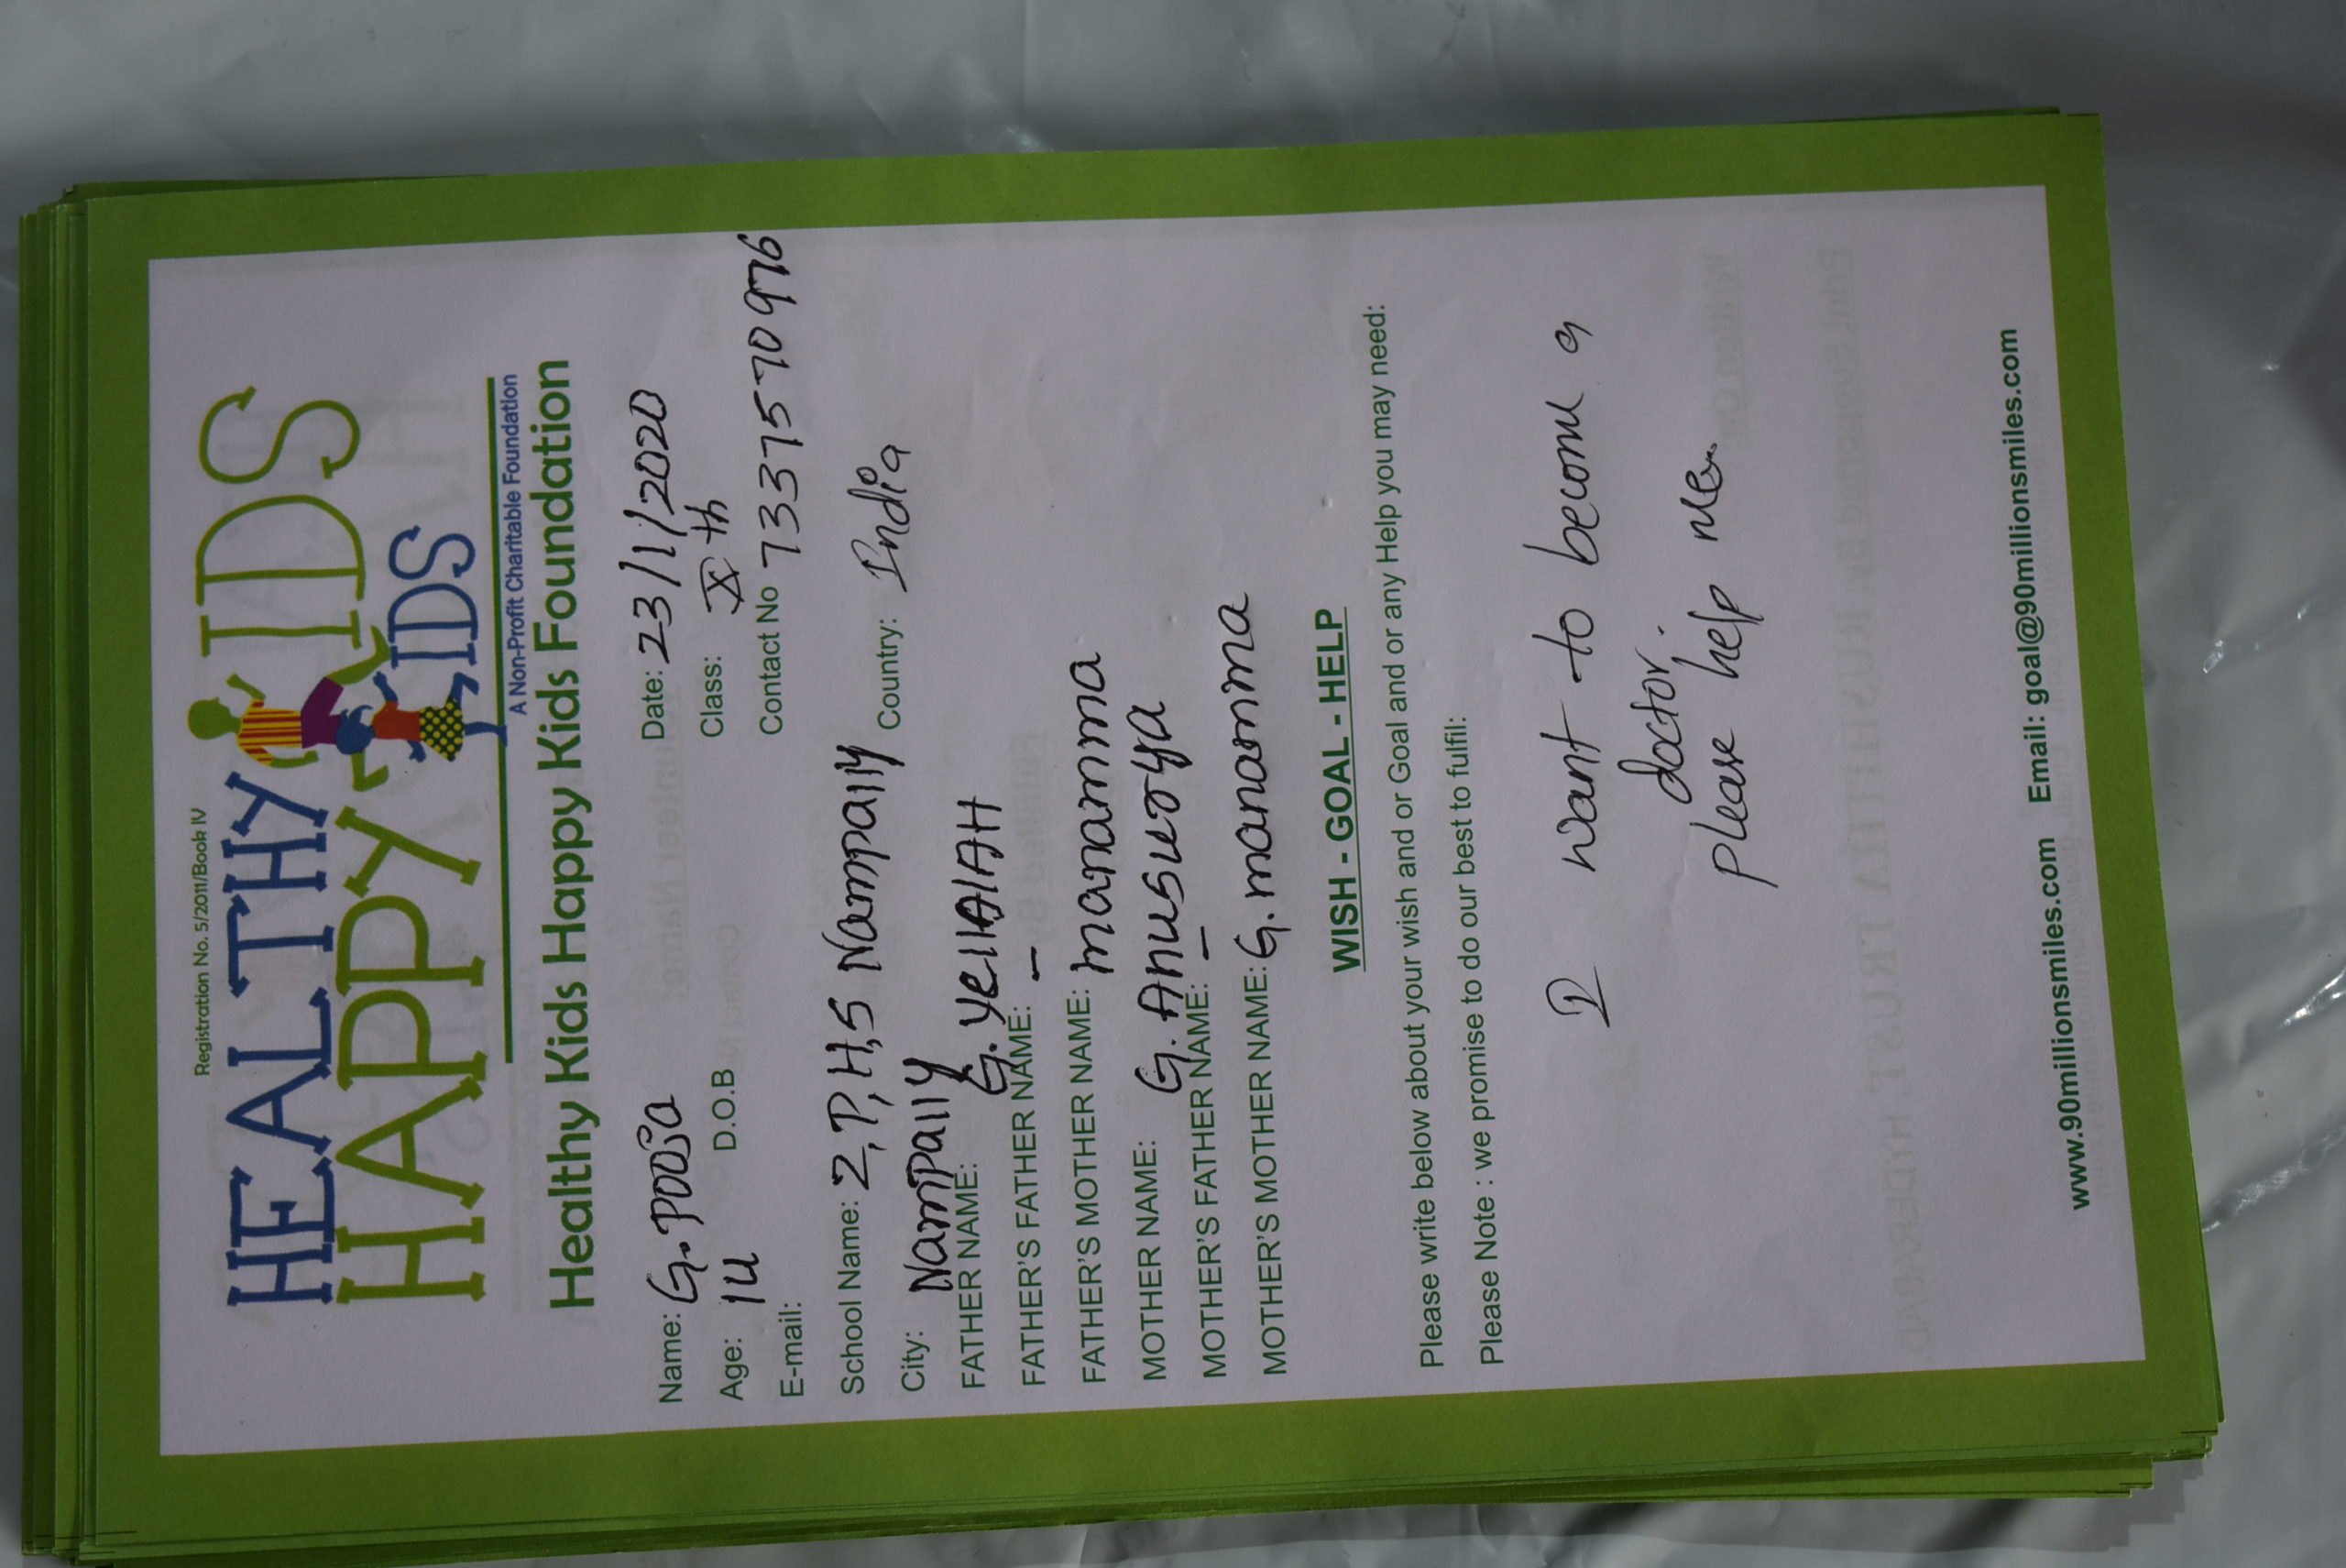 Registration No. 5/2011/Book IV
HEALTHY KIDS
HAPPY KIDS
A Non-Profit Charitable Foundation
Healthy Kids Happy Kids Foundation
Name: G.Pooja Date: 23/1/2020
Age: 14 D.O.B Class: X th
E-mail: Contact No 7337570976
School Name: Z,P,H,S Nampally
City: Nampally Country: India
FATHER NAME: G. YellAIAH
FATHER'S FATHER NAME: –
FATHER'S MOTHER NAME: manamma
MOTHER NAME: G. Anusuroya
MOTHER'S FATHER NAME: –
MOTHER'S MOTHER NAME: G.manamma
WISH - GOAL - HELP
Please write below about your wish and or Goal and or any Help you may need:
Please Note : we promise to do our best to fulfil:
I want to become a
doctor.
please help me.
www.90millionsmiles.com Email: goal@90millionsmiles.com